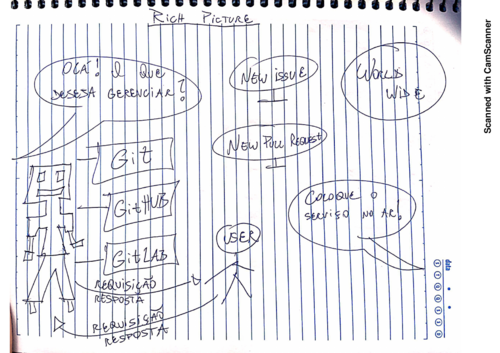 RICH PICTURE
OLÁ! O QUE
DESEJA GERENCIAR?
NEW ISSUE
WORLD
WIDE
NEW PULL REQUEST
Git
GitHUB
GitLAB
COLOQUE O
SERVIÇO NO AR!
USER
REQUISIÇÃO
RESPOSTA
REQUISIÇÃO
RESPOSTA
data
Scanned with CamScanner